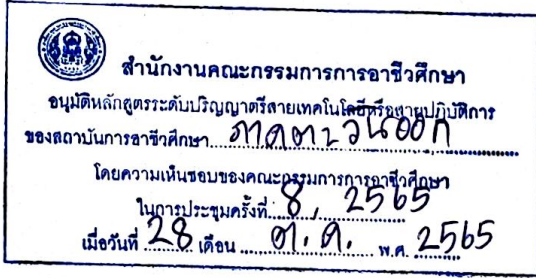 สำนักงานคณะกรรมการการอาชีวศึกษา
อนุมัติหลักสูตรระดับปริญญาตรีสายเทคโนโลยีหรือสายปฏิบัติการ
ของสถาบันการอาชีวศึกษา ภาคตะวันออก
โดยความเห็นชอบของคณะกรรมการการอาชีวศึกษา
ในการประชุมครั้งที่ 8, 2565
เมื่อวันที่ 28 เดือน ต.ค. พ.ศ. 2565